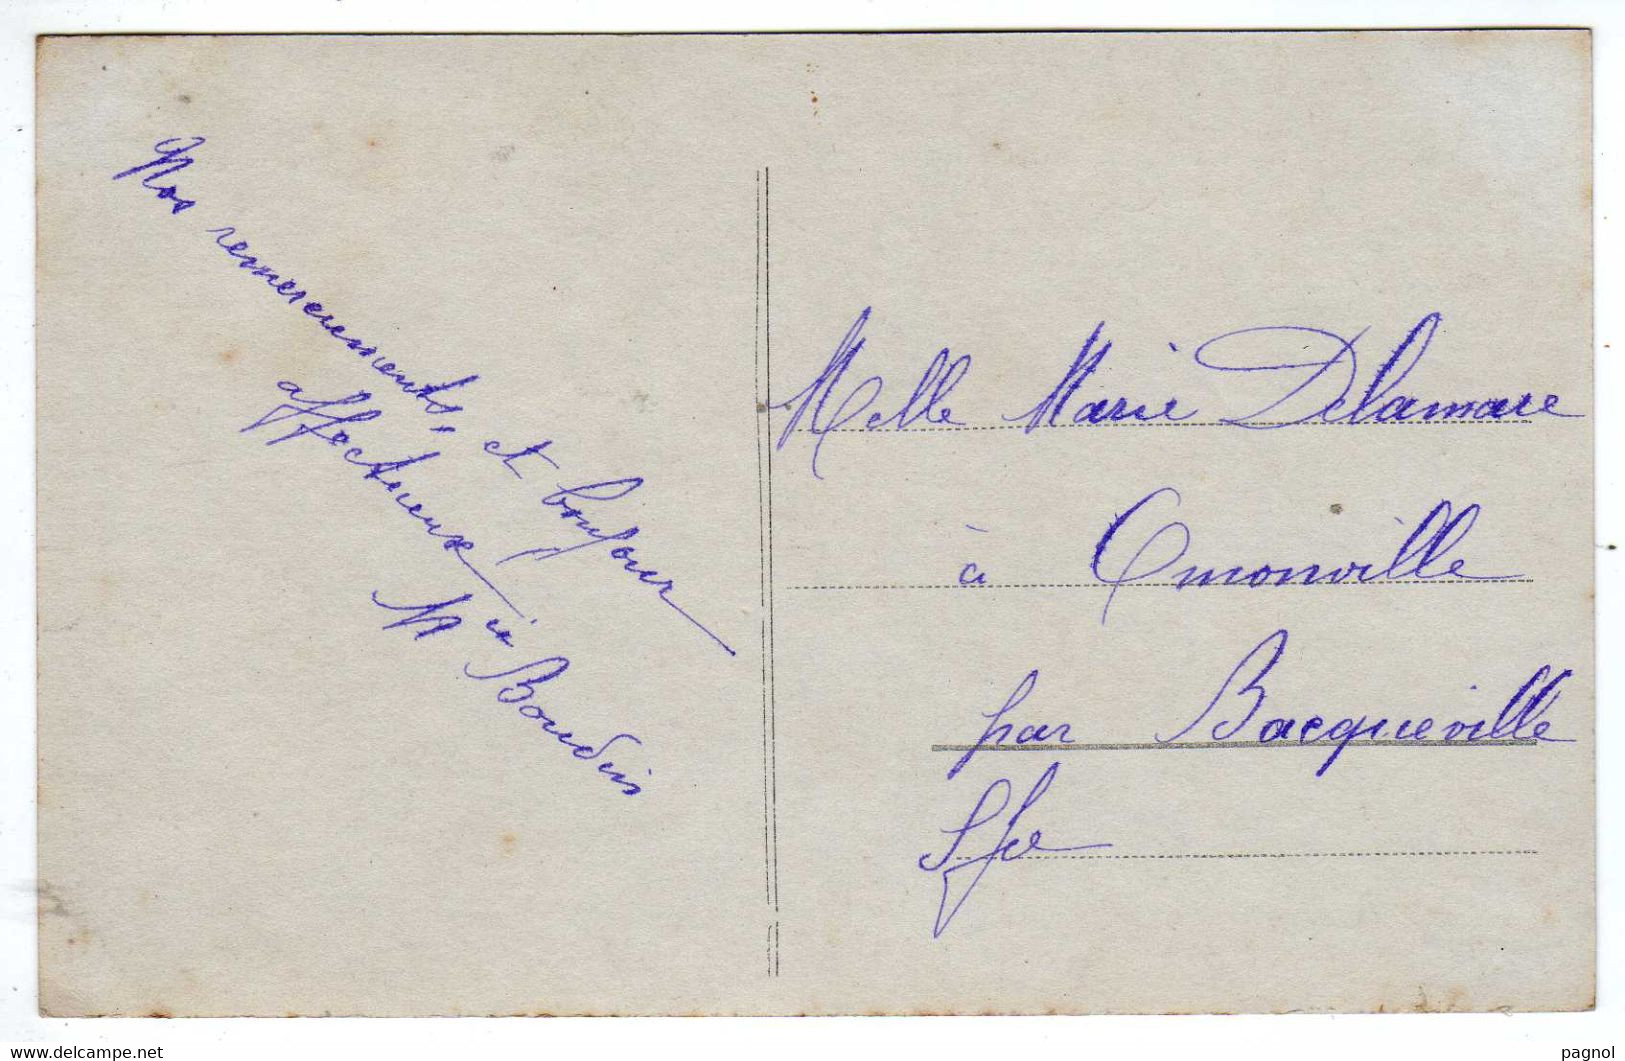 Nos remerciements, et bonjour
affectueux
Mcie Boudin
Melle Marie Delamare
à Omonville
par Bacqueville
Sfce
www.delcampe.net
pagnol